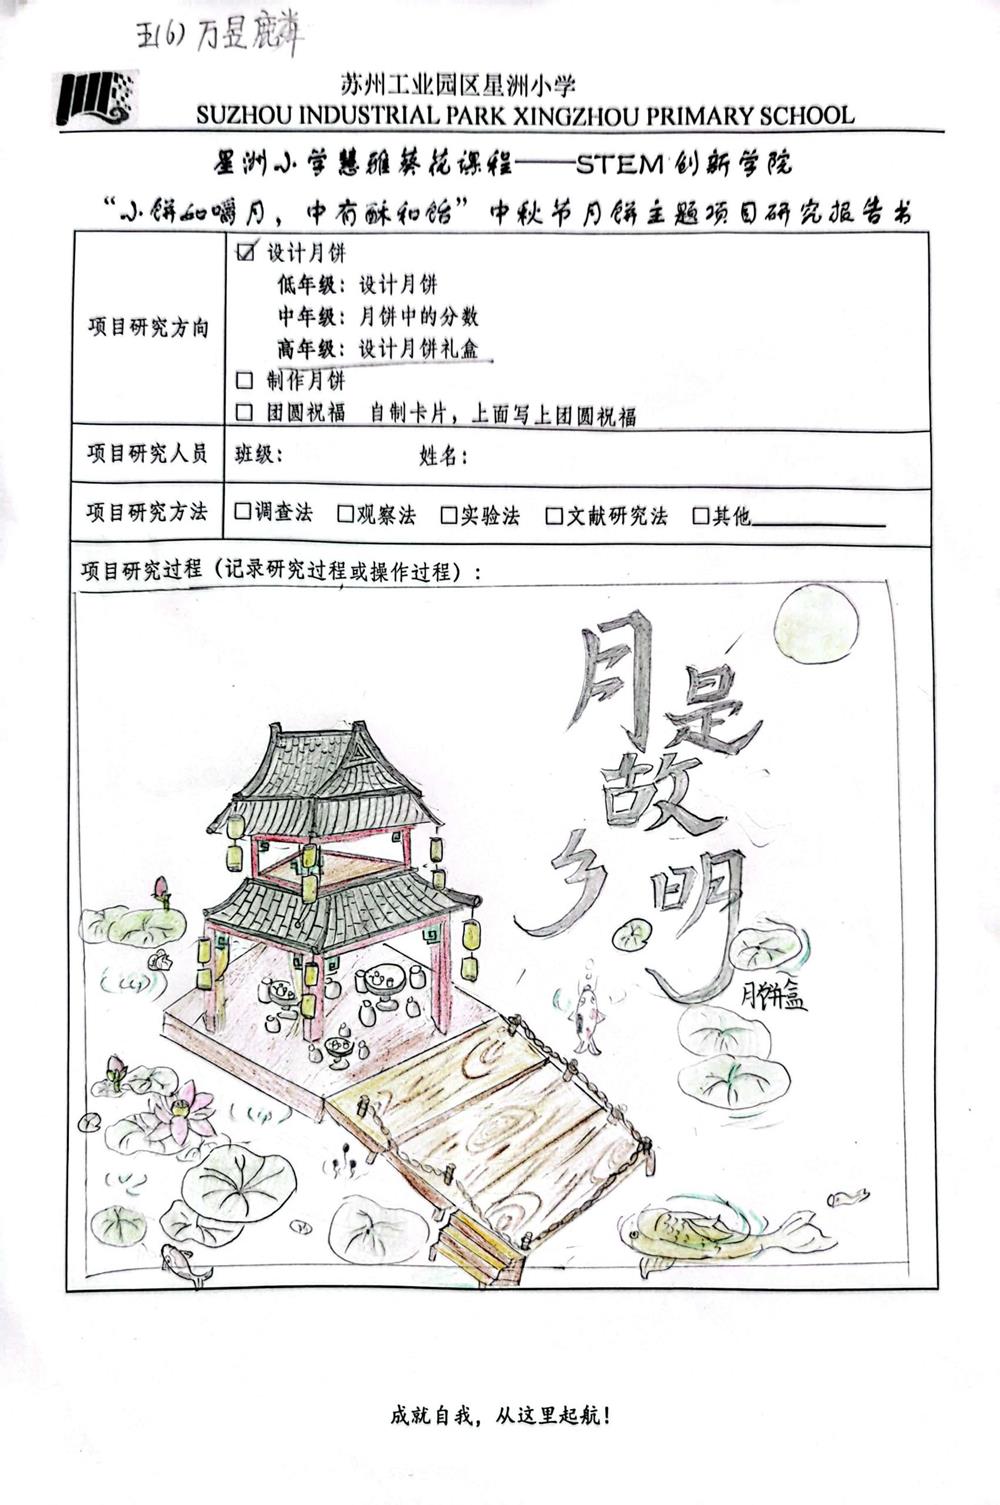 五(6) 万昱麟
苏州工业园区星洲小学
SUZHOU INDUSTRIAL PARK XINGZHOU PRIMARY SCHOOL
星洲小学慧雅葵花课程——STEM创新学院
“小饼如嚼月，中有酥和饴”中秋节月饼主题项目研究报告书
项目研究方向
☑ 设计月饼
低年级：设计月饼
中年级：月饼中的分数
高年级：设计月饼礼盒
□ 制作月饼
□ 团圆祝福 自制卡片，上面写上团圆祝福
项目研究人员 班级： 姓名：
项目研究方法 □调查法 □观察法 □实验法 □文献研究法 □其他________
项目研究过程（记录研究过程或操作过程）：
月是
故
乡明
月饼盒
成就自我，从这里起航！